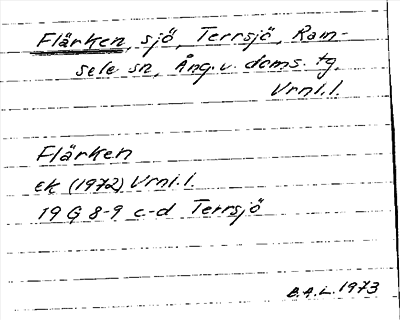 Flärken, sjö, Terrsjö, Ram-
sele sn, Ång. v. doms. tg.
Vrnl.l.
Flärken
ek (1972) Vrnl.l.
19 G 8-9 c-d Terrsjö
B.A.L. 1973